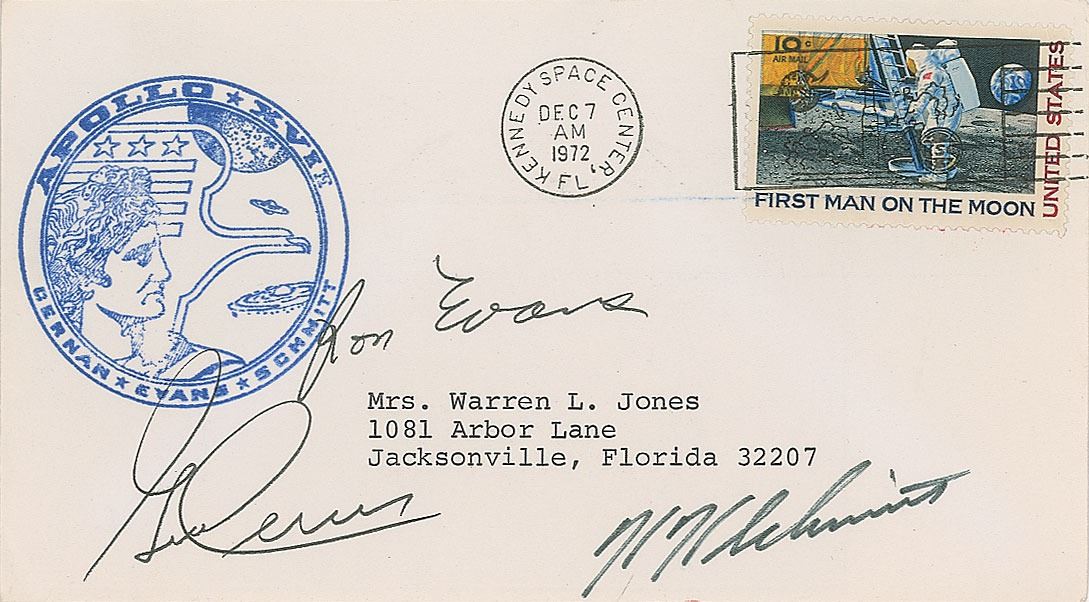 APOLLO ★ XVII
CERNAN ★ EVANS ★ SCHMITT
KENNEDY SPACE CENTER, FL
DEC 7
AM
1972
10¢
AIR MAIL
UNITED STATES
FIRST MAN ON THE MOON
Ron Evans
Mrs. Warren L. Jones
1081 Arbor Lane
Jacksonville, Florida 32207
Gene Cernan
H H Schmitt